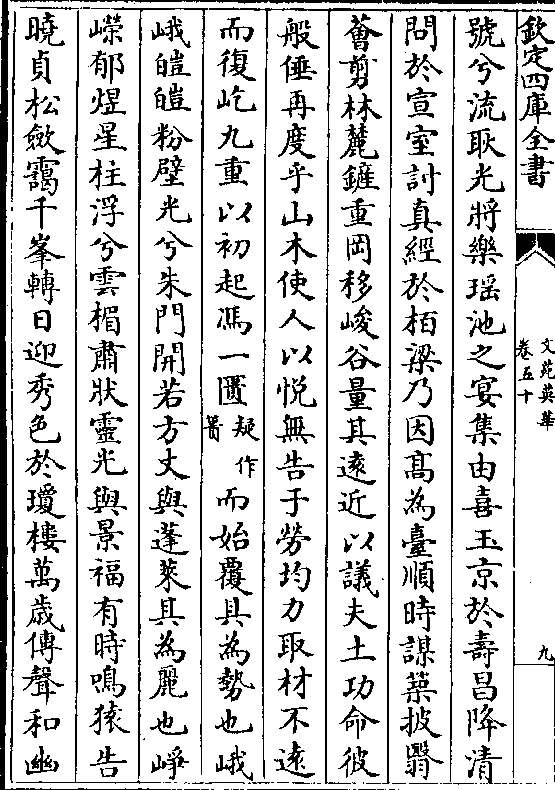 欽定四庫全書
文苑英華
卷五十
九
號兮流耿光將樂瑶池之宴集由喜玉京於壽昌降清
問於宣室討真經於栢梁乃因髙為臺順時謀築披翳
薈剪林麓鏟重岡移峻谷量其逺近以議夫土功命彼
般倕再度乎山木使人以悦無告于勞均力取材不逺
而復屹九重以初起馮一匱疑作簣而始覆其為勢也峨
峨皚皚粉壁光兮朱門開若方丈與蓬萊其為麗也崢
嶸郁煜星柱浮兮雲楣肅狀靈光與景福有時鳴猿告
曉貞松斂靄千峯轉日迎秀色於瓊樓萬歲傳聲和幽